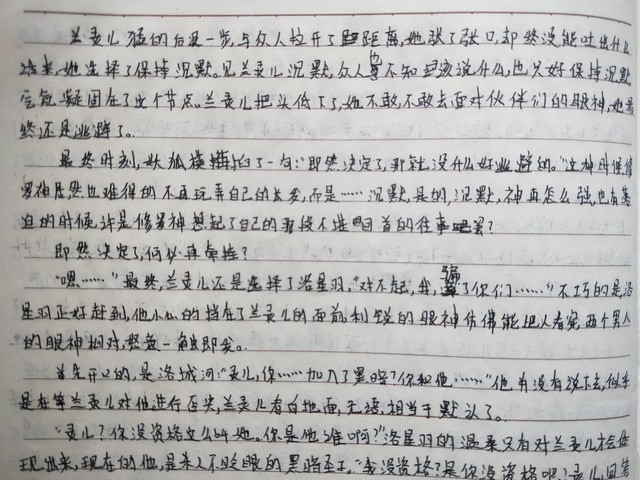 兰灵儿猛的后退一步,与众人拉开了距离,她张了张口,却然没能吐出什么
话来,她选择了保持沉默。见兰灵儿沉默,众人也不知该说什么,也只好保持沉默
空气凝固在了这个节点。兰灵儿把头低下了,她不敢,不敢去面对伙伴们的眼神,她最
终还是逃避了。
最终时刻,妖狐摸了一句:“即然决定了,那就没什么好逃避的。”这种时候修
罗神居然也难得的不再玩弄自己的长发,而是……沉默,是的,沉默,神再怎么强,也有
迫的时候,许是修罗神想起了自己的那段不堪回首的往事吧?
即然决定了,何必再牵挂?
“嗯……”最终,兰灵儿还是选择了洛星羽,“对不起,我,骗了你们……”不巧的是洛
星羽正好赶到,他小心的挡在了兰灵儿的面前,利锐的眼神仿佛能把人看穿,两个男人
的眼神相对,怒意一触即发。
首先开口的,是洛城河:“灵儿,你……加入了黑暗?你和他……”他有没有说下去,似乎
是在等兰灵儿对他进行否定,兰灵儿看白地面,无语,相当于默认了。
“灵儿?你没资格这么叫她。你是她谁啊?”洛星羽的温柔只有对兰灵儿才会体
现出来,现在的他,是杀人不眨眼的黑暗至王,“我没资格?是你没资格吧?灵儿回答